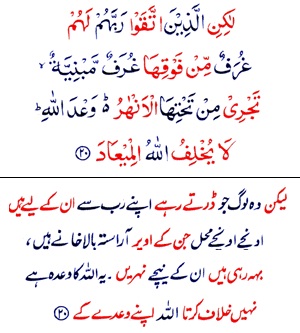 لٰكِنِ الَّذِيْنَ اتَّقَوْا رَبَّهُمْ لَهُمْ
غُرَفٌ مِّنْ فَوْقِهَا غُرَفٌ مَّبْنِيَّةٌ ۙ
تَجْرِىْ مِنْ تَحْتِهَا الْاَنْهٰرُ ؕ وَعْدَ اللّٰهِ ؕ
لَا يُخْلِفُ اللّٰهُ الْمِيْعَادَ ﴿۲۰﴾
لیکن وہ لوگ جو ڈرتے رہے اپنے رب سے ان کے لیے ہیں
اونچے اونچے محل جن کے اوپر آراستہ بالاخانے ہیں ،
بہہ رہی ہیں ان کے نیچے نہریں ۔ یہ اللہ کا وعدہ ہے
نہیں خلاف کرتا اللہ اپنے وعدے کے ﴿۲۰﴾